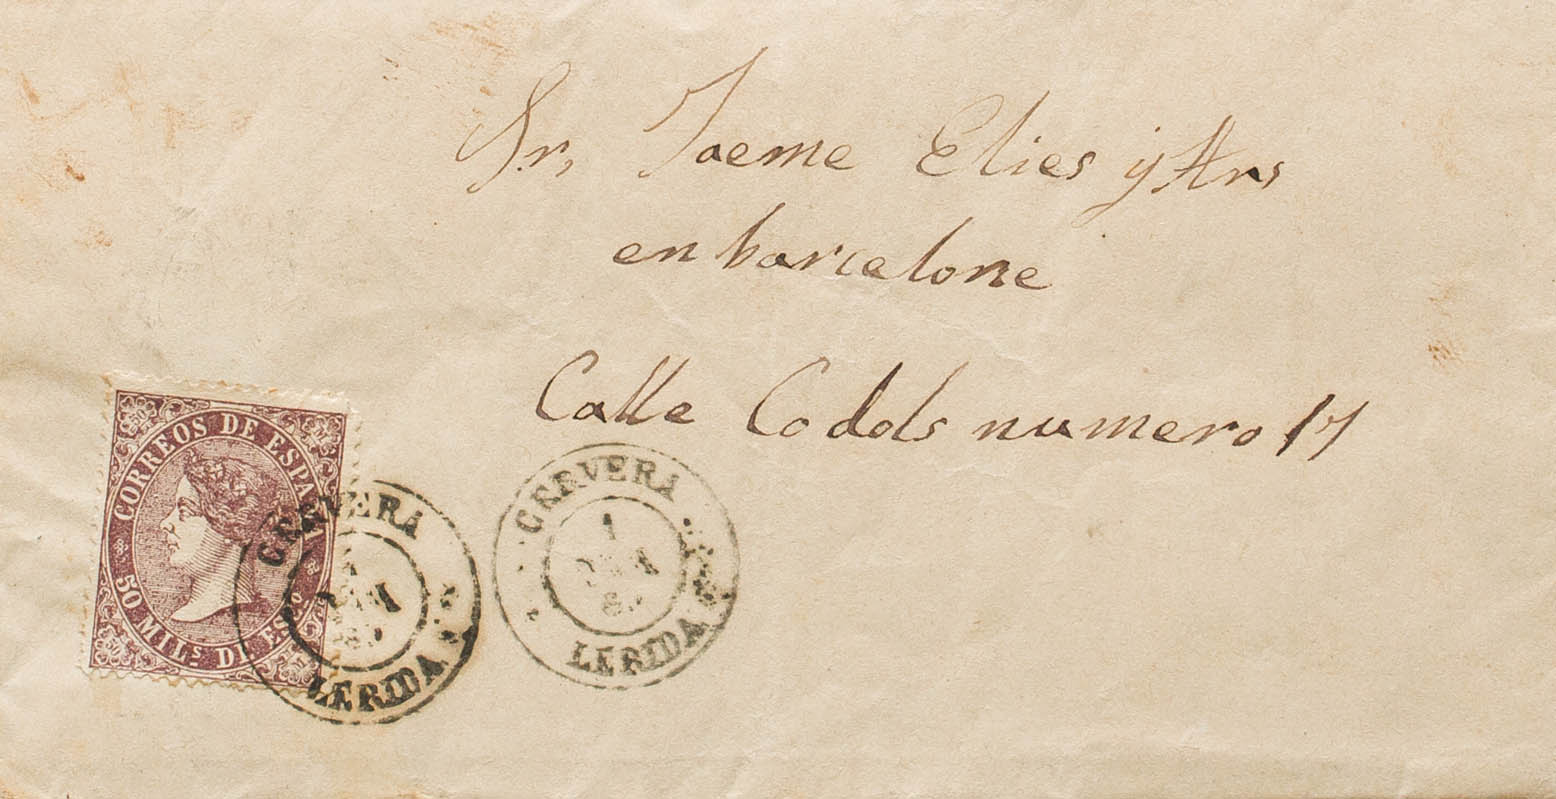 Sr. Jaeme Elies y Hrs
en barcelone
Calle Codols numero 17
CORREOS DE ESPAÑA
50 MIL.S DE ESO.
CERVERA
1
LERIDA
CERVERA
1
LERIDA